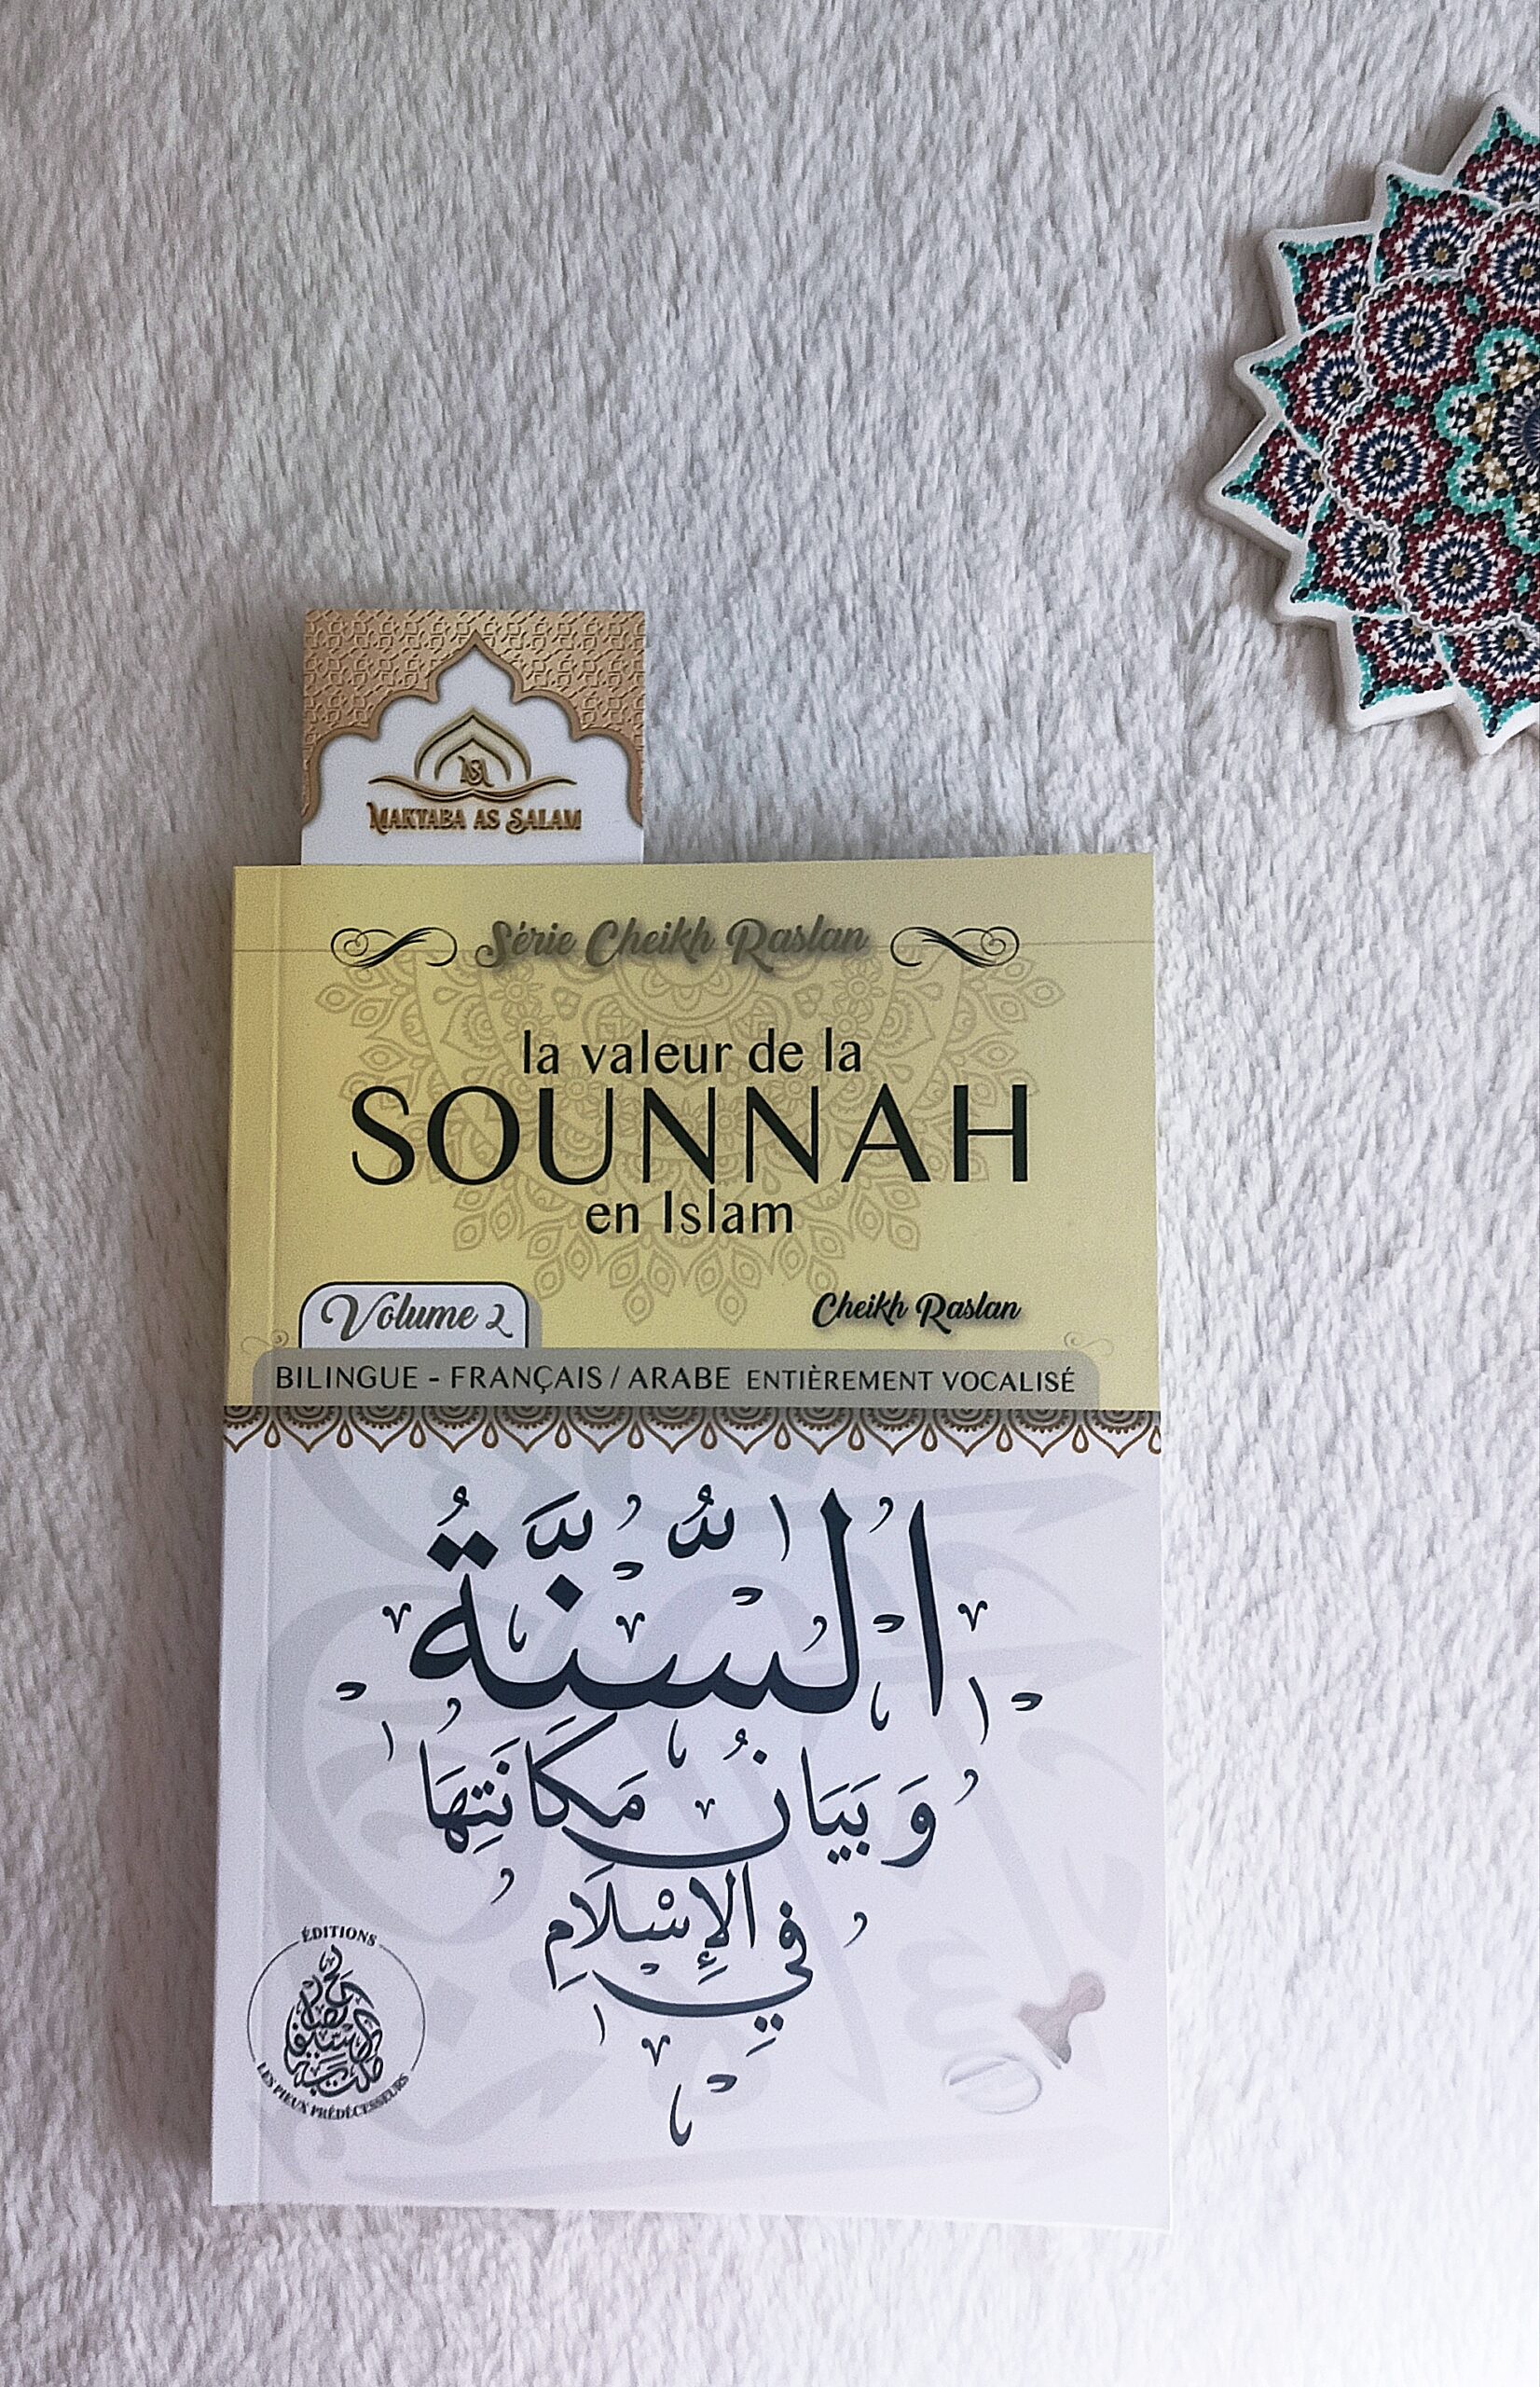 MAKTABA AS SALAM
Série Cheikh Raslan
la valeur de la
SOUNNAH
en Islam
Volume 2
Cheikh Raslan
BILINGUE - FRANÇAIS / ARABE ENTIÈREMENT VOCALISÉ
السُّنَّةُ
وَبَيَانُ مَكَانَتِهَا
فِي الإِسْلَامِ
ÉDITIONS
LES PIEUX PRÉDÉCESSEURS